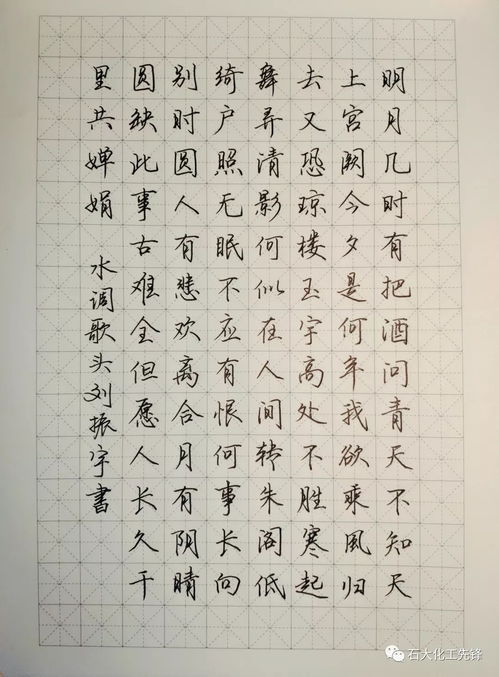 明月几时有把酒问青天不知天
上宫阙今夕是何年我欲乘風归
去又恐琼楼玉宇高处不胜寒起
舞弄清影何似在人间转朱阁低
绮户照无眠不应有恨何事长向
别时圆人有悲欢离合月有阴晴
圆缺此事古难全但愿人长久千
里共婵娟 水调歌头刘振宇書
石大化工先锋